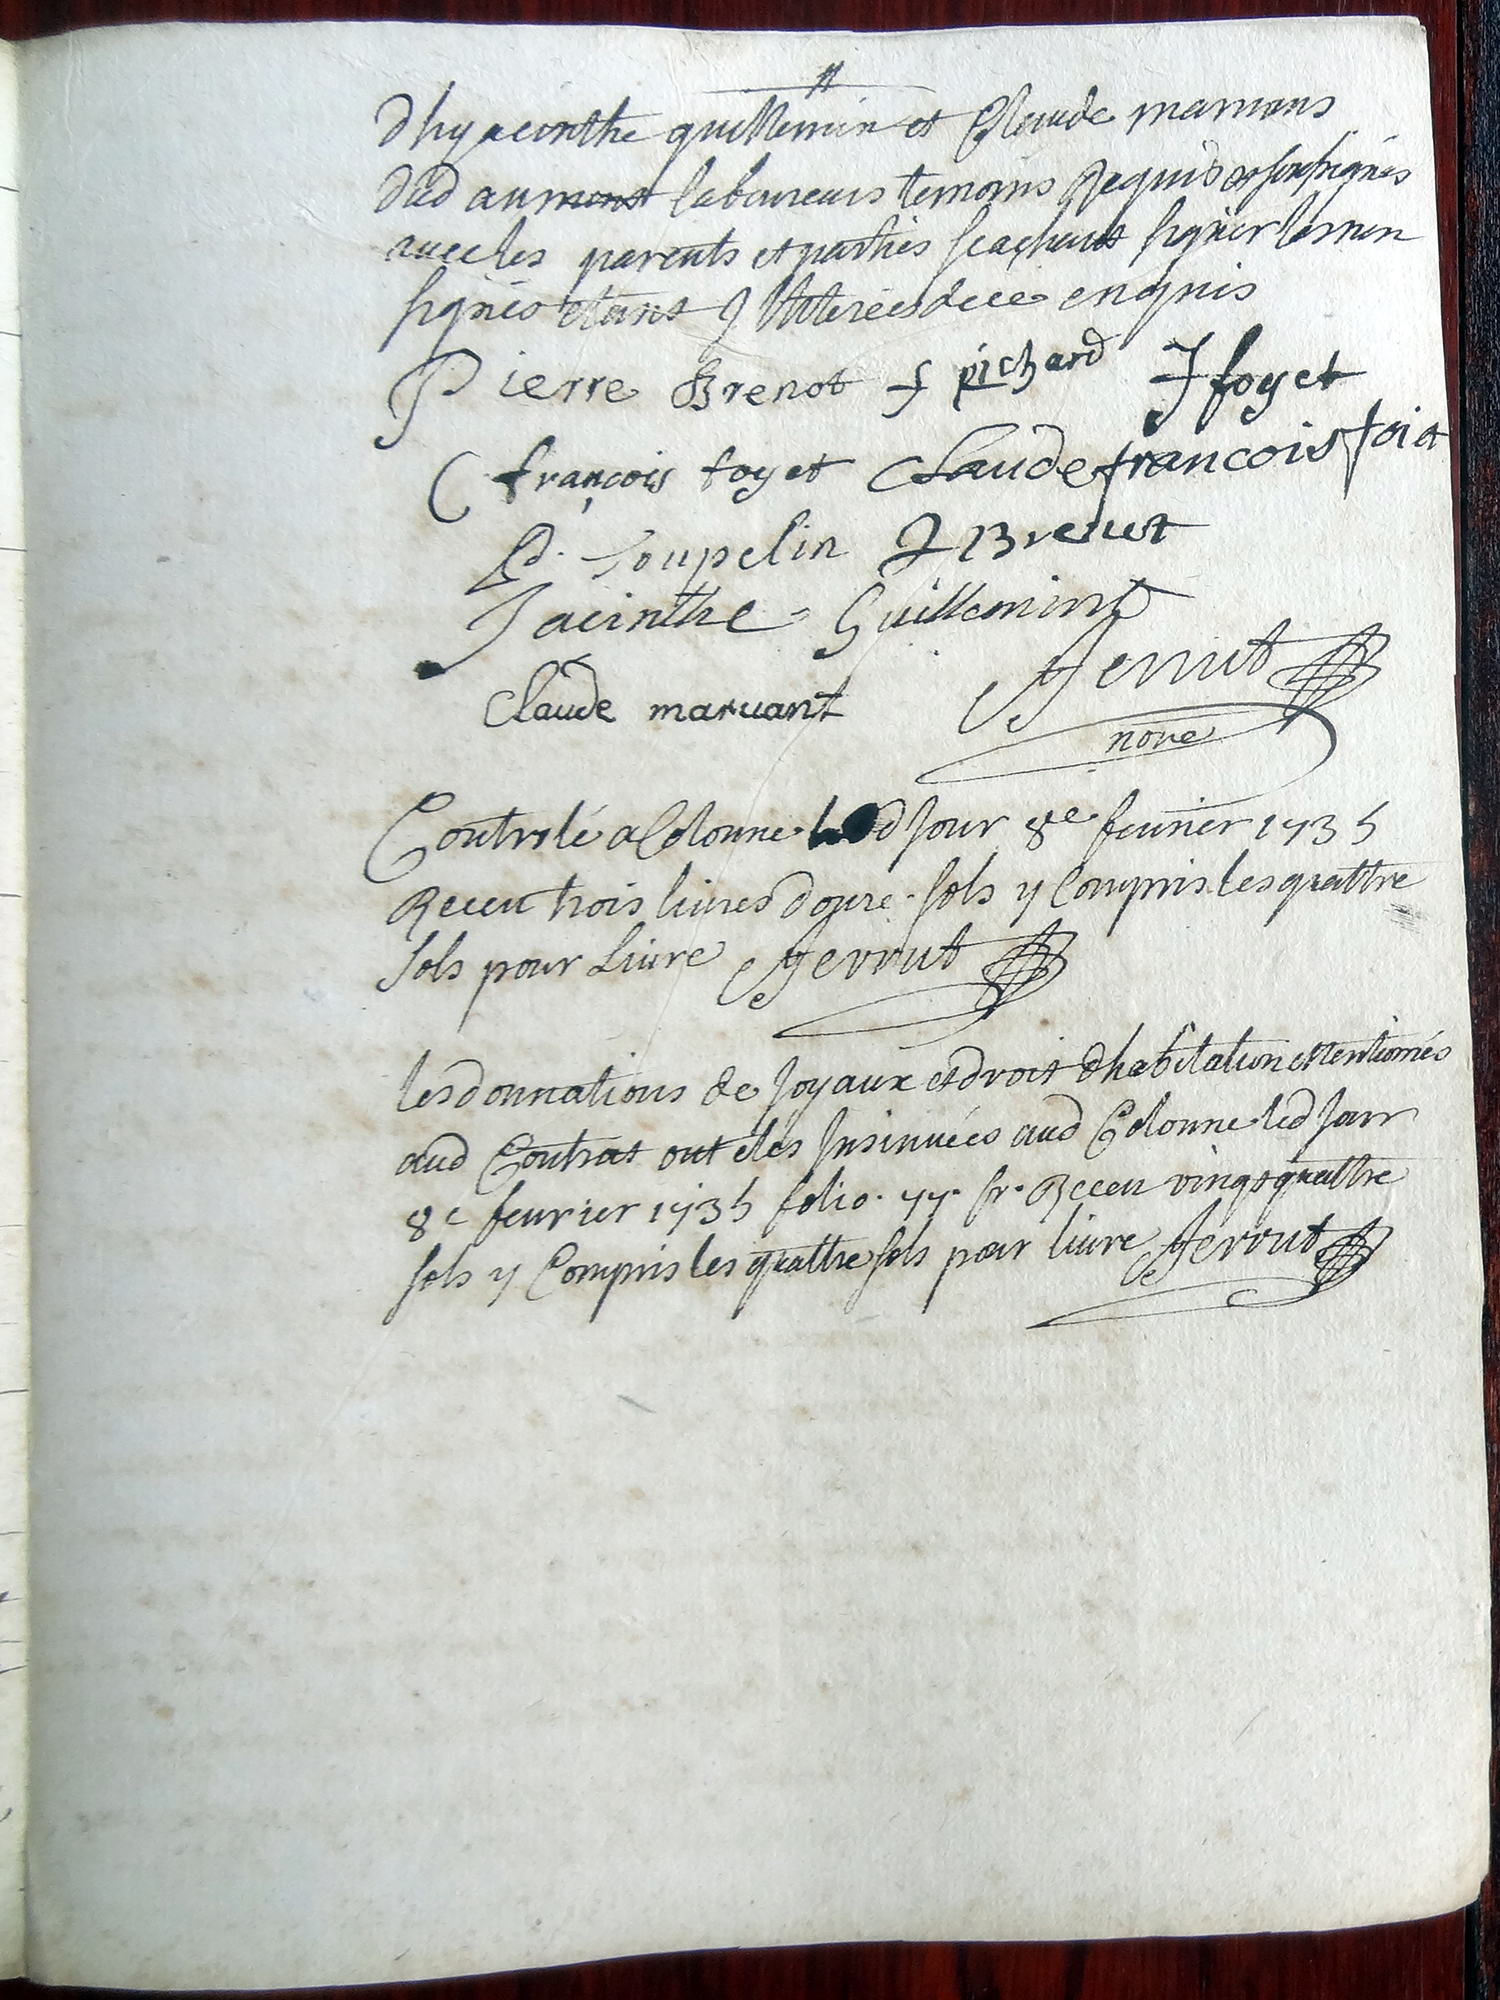 dhyacinthe guillemin et Claude marmans
dud aumont laboureurs temoins requis et soussignés
avec les parents et parties scachant signer les non
signés etans Illiterées de ce enquis
Pierre Brenot f pichard J foyet
françois foyet Claude francois foiet
P. Poupelin J Brenot
Jacinthe Guillemint
Claude maruant Jerrut
nore
Controlé a Colonne led Jour 8e feurier 1735
Receu trois liures douze sols y Compris les quattre
sols pour Liure Jerrut
les donnations de Joyaux et droit dhabitation mentionnés
aud Contrat ont etés Insinuées aud Colonne led Jour
8e feurier 1735 folio 77 Receu vingt quattre
sols y Compris les quattre sols pour liure Jerrut